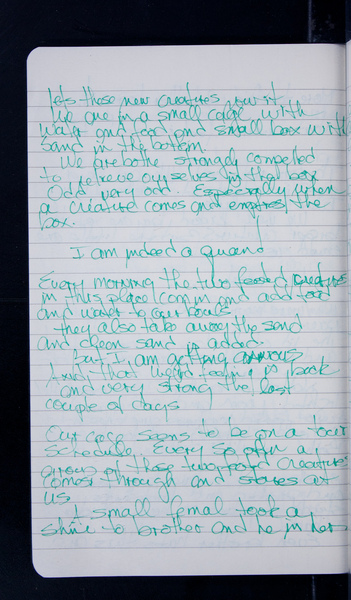 lets those new creatures
We are in a small cage with
water and food and small box with
sand in the bottom
We are bothe strangly compelled
to releive ourselves in that box
Odd very odd. Especially when
a creature comes and empties the
box.
I am indeed a guard
Every morning the two footed creatures
in this place comm in and add food
and water to our bowls.
they also take away the sand
and clean sand is added.
But I am getting
that weird feeling is back
and very strong the last
couple of days
Our cage seems to be on a tour
schedule. Every so often a
group of those two foot creatures
comes through and stares at
us
A small femal took a
shine to brother and he in her